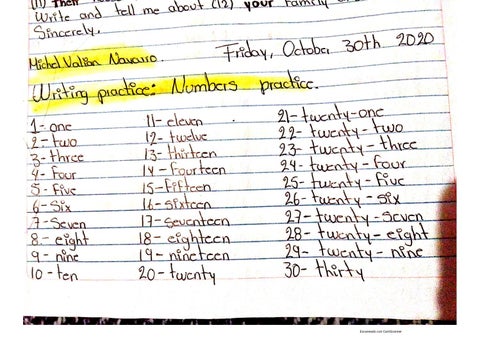 (11) Then
Write and tell me about (12) your Family
Sincerely,
Friday, October 30th 2020
Michel Valian Navarro.
Writing practice: Numbers practice.
1- one
2- two
3- three
4- four
5- five
6- Six
7- Seven
8- eight
9- nine
10- ten
11- eleven
12- twelve
13- thirteen
14- fourteen
15- fifteen
16- sixteen
17- seventeen
18- eighteen
19- nineteen
20- twenty
21- twenty-one
22- twenty-two
23- twenty-three
24- twenty-four
25- twenty-five
26- twenty-six
27- twenty-seven
28- twenty-eight
29- twenty-nine
30- thirty